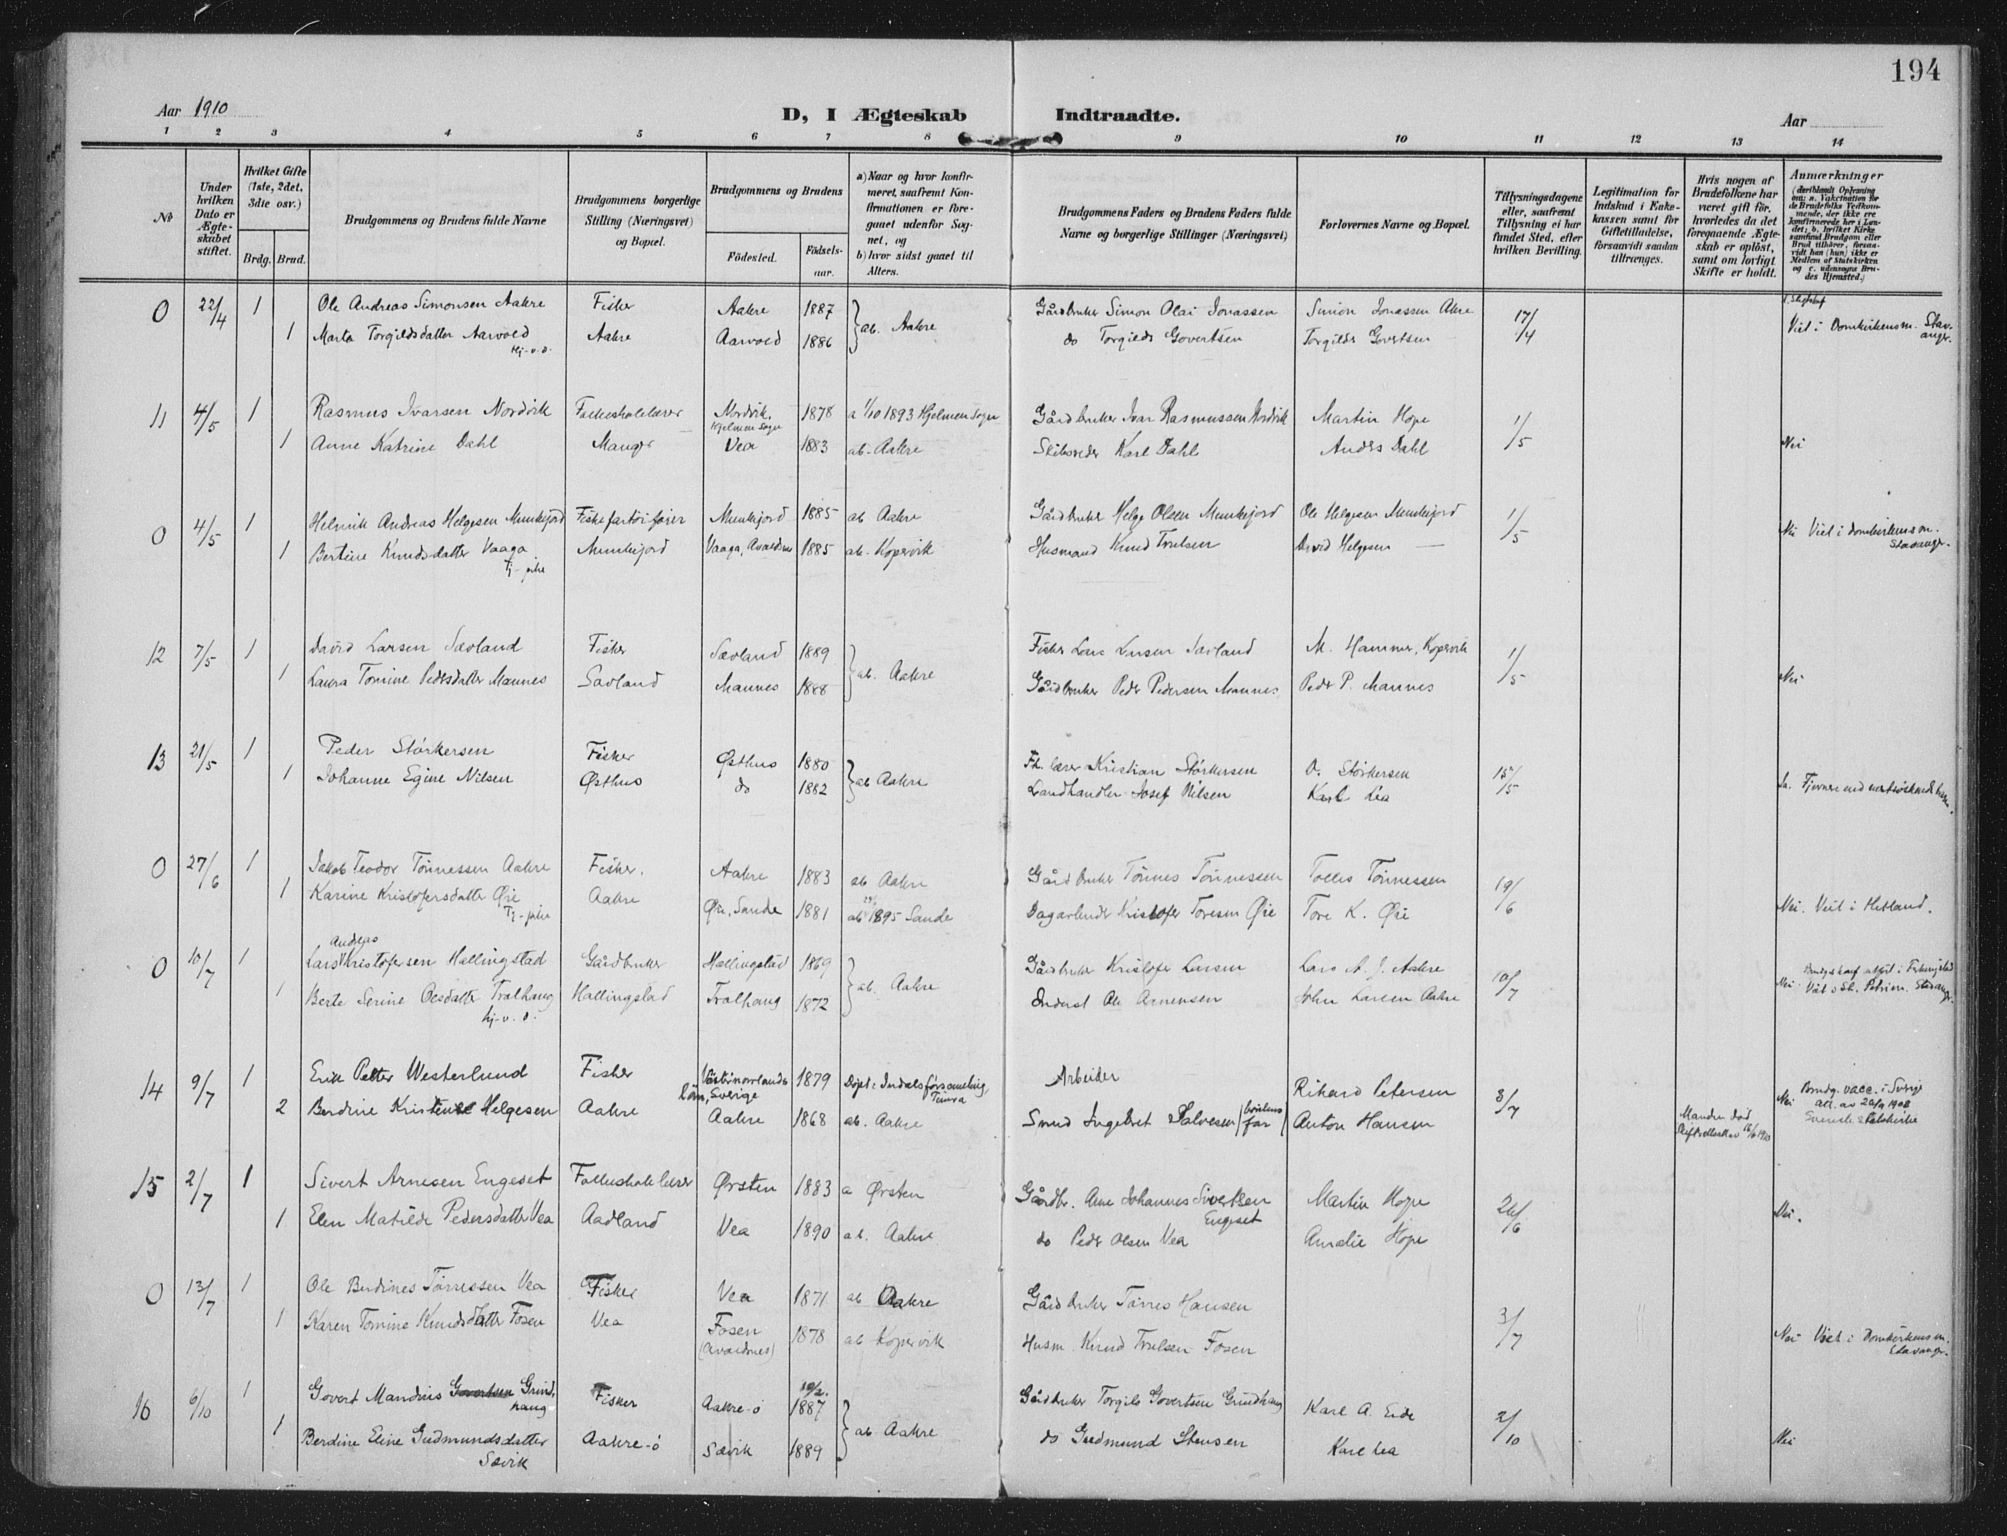 194
Aar 1910
D, I Ægteskab Indtraadte.
Aar
1 2 3 4 5 6 7 8 9 10 11 12 13 14
No
Under hvilken Dato er Ægteskabet stiftet.
Hvilket Gifte (1ste, 2det, 3die osv.)
Brdg. Brud.
Brudgommens og Brudens fulde Navne
Brudgommens borgerlige Stilling (Næringsvei) og Bopæl.
Brudgommens og Brudens
Fødested. Fødselsaar.
a) Naar og hvor konfirmeret, saafremt Konfirmationen er foregaaet udenfor Sognet, og
b) hvor sidst gaaet til Alters.
Brudgommens Faders og Brudens Faders fulde Navne og borgerlige Stillinger (Næringsvei)
Forlovernes Navne og Bopæl.
Tillysningsdagene eller, saafremt Tillysning ei har fundet Sted, efter hvilken Bevilling.
Legitimation for Indskud i Enkekassen samt for Giftetilladelse, forsaavidt saadan tiltrænges.
Hvis nogen af Brudefolkene har været gift før, hvorledes da det foregaaende Ægteskab er opløst, samt om lovligt Skifte er holdt.
Anmærkninger
0 22/4 1 Ole Andreas Simonsen Aakre Fisker Aakre 1887 ab. Aakre Gårdbruker Simon Olai Jonassen Simon Jonassen Akre 17/4
1 Marta Torgildsdatter Aarvold Aakre Aarvold 1886 do Torgilds Govertsen Torgilds Govertsen Viet i Domkirkensm. Stavanger.
Hj-v.d.
11 4/5 1 Rasmus Ivarsen Nordvik Folkeskolelærer Nordvik, Hjelmen Sogn 1878 a 1/10 1893 Hjelmen Sogn Gårdbruker Ivar Rasmussen Nordvik Martin Hope 1/5
1 Anne Katrine Dahl Manger Vea 1883 ab. Aakre Skibsreder Karl Dahl Anders Dahl Nei
0 4/5 1 Helmik Andreas Helgesen Munkejord Munkejord 1885 ab Aakre Gårdbruker Helge Olsen Munkejord Ole Helgesen Munkejord 1/5
1 Bertine Knudsdatter Vaaga Munkejord Vaaga, Avaldsnes 1885 ab. Kopervik Husmand Knud Trulsen Helgesen — Nei Viet i Domkirkensm. Stavanger.
Tj-pike
12 7/5 1 David Larsen Sævland Fisker Sævland 1889 ab. Aakre Fisker Lars Larsen Sævland M. Hammer, Kopervik 1/5
1 Laura Tomine Pedersdatter Mannes Sævland Mannes 1888 Gårdbruker Peder Pedersen Mannes Peder P. Mannes Nei
13 21/5 1 Peder Størkersen Fisker Østhus 1880 ab Aakre Fh. lærer Kristian Størkersen O. Størkersen 15/5
1 Johanne Egine Nilsen Østhus do 1882 Landhandler Josef Nilsen Karl Lea Ja.
0 27/6 1 Jakob Teodor Tønnessen Aakre Fisker. Aakre 1883 ab Aakre Gårdbruker Tønnes Tønnessen Tønnessen 19/6
1 Karine Kristofersdatter Øie Aakre Øie, Sande 1881 ab 1895 Sande Kristofer Toresen Øie Tore K. Øie Nei. Viet i Hetland.
Tj-pike
0 10/7 1 Lars Andreas Kristofersen Hallingstad Gårdbruker Hallingstad 1869 ab. Aakre Gårdbruker Kristofer Larsen Lars A. J. Aakre 10/7
1 Berte Serine Olsdatter Tralhaug Hallingstad Tralhaug 1872 Inderst Ole Arnensen John Larsen Aakre Nei Viet i St. Petrim. Stavanger.
hj-v.d.
14 9/7 1 Erik Petter Westerlund Fisher Västernorrlands Län, Sverige 1879 Døpt i Indals församling, Timrå Arbeider Rikard Petersen 3/7
2 Berdine Kristense Helgesen Aakre Aakre 1868 ab. Aakre Smed Ingebret Salvesen (brudens far) Anton Hansen Manden død Skifteattest av 16/6 1910 Nei Brudg. vacc. i Sverige att. av 20/4 1908 Svenske Statskirke
15 2/7 1 Sivert Arnesen Engeset Folkeskolelærer Ørsten 1883 a Ørsten Gårdbr. Arne Johannes Sivertsen Engeset Martin Hope 26/6
1 Elen Matilde Pedersdatter Vea Aadland Vea 1890 ab. Aakre do Peder Olsen Vea Amalie Hope Nei.
0 13/7 1 Ole Berdines Tørressen Vea Fisker Vea 1871 ab Aakre Gårdbruker Tørres Hansen 3/7
1 Karen Tomine Knudsdatter Fosen Vea Fosen (Avaldsnes) 1878 ab Kopervik Husm. Knud Trulsen Fosen Nei Viet i Domkirkensm. Stavanger.
16 6/10 1 Govert Mandrus Govertsen Grindhaug Fisker Aakre-ø 19/2. 1887 ab Aakre Gårdbruker Torgils Govertsen Grindhaug Karl A. Eide 2/10
1 Berdine Eline Gudmundsdatter Sævik Aakre-ø Sævik 1889 do Gudmund Stensen Karl Lea Nei